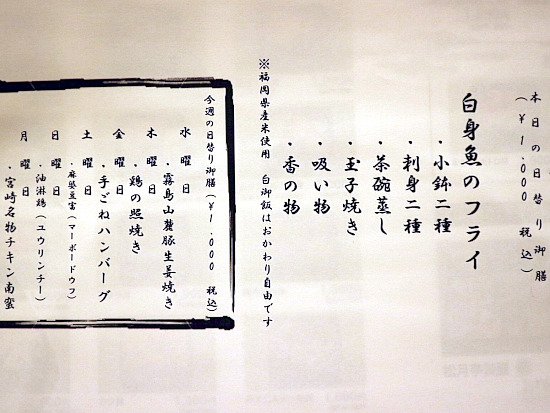 本日の日替り御膳
(¥1.000 税込)
白身魚のフライ
・小鉢二種
・刺身二種
・茶碗蒸し
・玉子焼き
・吸い物
・香の物
※福岡県産米使用 白御飯はおかわり自由です
今週の日替り御膳(¥1.000 税込)
水曜日
・霧島山麓豚生姜焼き
木曜日
・鶏の照焼き
金曜日
・手ごねハンバーグ
土曜日
・麻婆豆富(マーボードウフ)
日曜日
・油淋鶏(ユウリンチー)
月曜日
・宮崎名物チキン南蛮